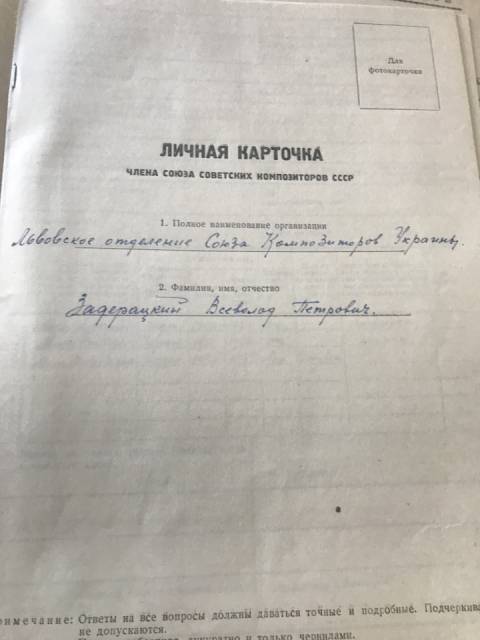 Для
фотокарточки
ЛИЧНАЯ КАРТОЧКА
ЧЛЕНА СОЮЗА СОВЕТСКИХ КОМПОЗИТОРОВ СССР
1. Полное наименование организации
Львовское отделение Союза Композиторов Украины.
2. Фамилия, имя, отчество
Задерацкий Всеволод Петрович.
имечание: Ответы на все вопросы должны даваться точные и подробные. Подчеркива
не допускаются.
аккуратно и только чернилами.